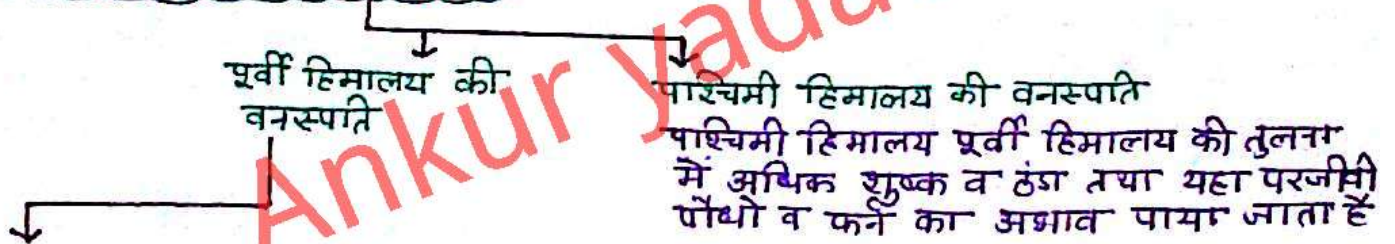 पूर्वी हिमालय की
वनस्पति
पाश्चिमी हिमालय की वनस्पति
पाश्चिमी हिमालय पूर्वी हिमालय की तुलना
में अधिक शुष्क व ठंडा तथा यहा परजीवी
पौधो व फर्न का अभाव पाया जाता है
Ankur